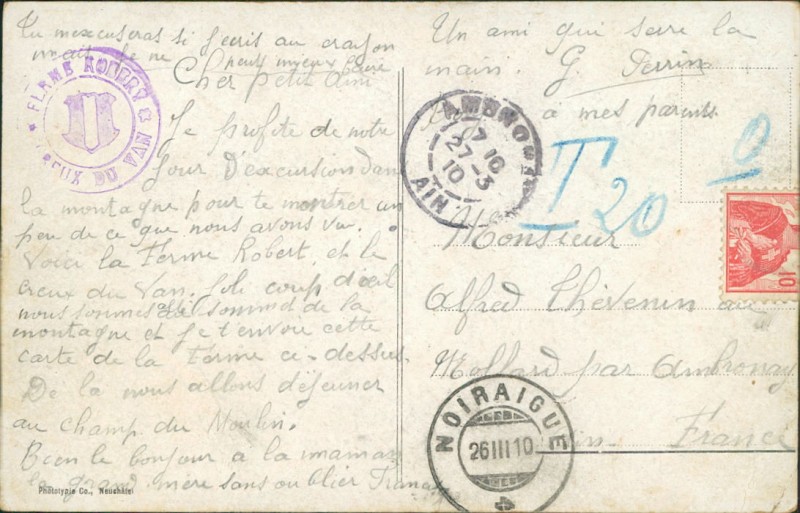 Tu mexcuseras si j'ecris au crayon
mais je ne peux mieux faire
Cher petit Ami
Je profite de notre
jour D'excursion dans
la montagne pour te montrer un
peu de ce que nous avons vu.
Voici la Ferme Robert, et le
creux du Van. Joli coup d'œil
nous sommes allé sommet de la
montagne et je t'envoie cette
carte de la Ferme ci-dessus.
De la nous allons déjeuner
au Champ du Moulin.
Bien le bonjour a la maman
la grand mère sans oublier
Phototypie Co., Neuchâtel
FERME ROBERT
CREUX DU VAN
Un ami qui serre la
main. G. Perrin
a mes parents
AMBRONAY
7 10
27-3
10
AIN
T 20
0
10
Monsieur
Alfred Thévenin au
Mollard par Ambronay
Ain. France
NOIRAIGUE
26 III 10